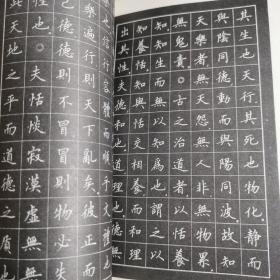 其生也天行其死也物化靜而
與陰同德動而與陽同波故知
天樂者無天怨無人非無物累
無鬼責◎古之治道者以恬養
知知生而無以知為也謂之以
知養恬知與恬交相養而和理
出其性夫德和也道理也
也信行容體而順乎文
樂遍行則天下亂矣彼正
己德德則不冒冒則物必失
也◎夫恬惔寂漠虛無
此天地之平而道德之質也